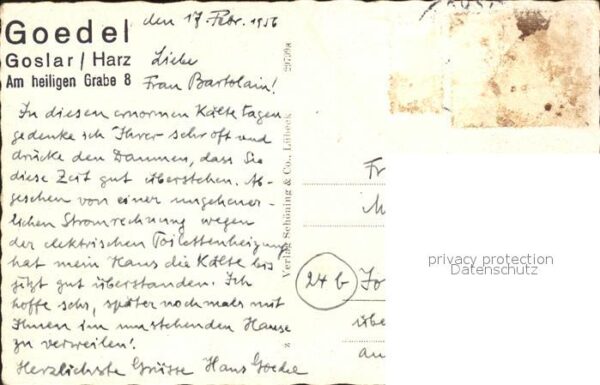 Goedel
Goslar / Harz
Am heiligen Grabe 8
den 17. Febr. 1956
Liebe
Frau Bartolain!
In diesen enormen Kältetagen
gedenke ich Ihrer sehr oft und
drücke den Daumen, dass Sie
diese Zeit gut überstehen. Ab-
gesehen von einer ungeheuer-
lichen Stromrechnung wegen
der elektrischen Toilettenheizung
hat mein Haus die Kälte bis
jetzt gut überstanden. Ich
hoffe sehr, später nochmals mit
Ihnen im umstehenden Hause
zu verweilen!
Herzlichste Grüsse Hans Goedel
29759a
Verlag Schöning & Co., Lübeck
Fr
24b
übe
privacy protection
Datenschutz